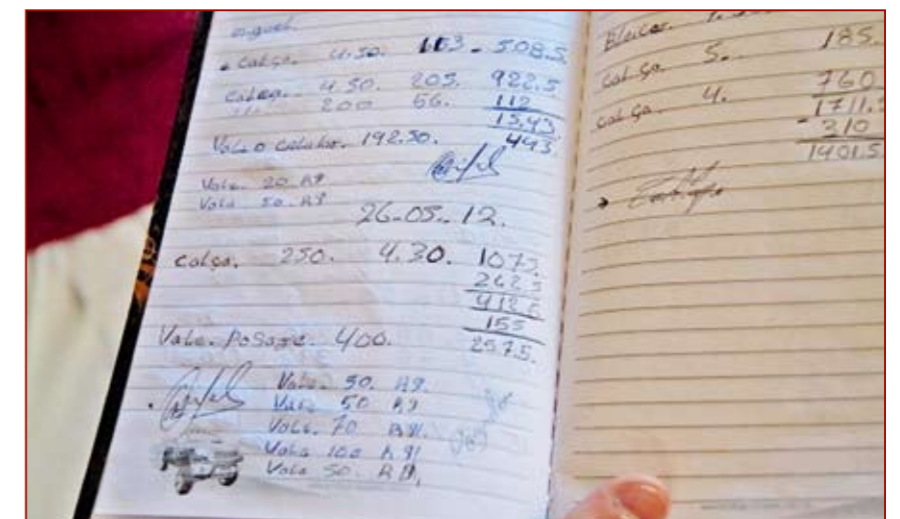 miguel.
calça. 4.50. 113 - 508.5
calça. 4.50. 205. 922.5
200 56. 112
15.43
Vale o celular. 192.50. 443.
Vale. 20 R$
Vale 50 R$
26-05-12.
calça. 250. 4.30. 1075.
242 5
412 5
155
Vale. Pasage. 400. 257.5.
Vale. 50. R$.
Vale 50 R$
Vale. 70 R$.
Vale 100 R$
Vale 50. R$.
185.
calça 5.
760
calça 4. 1711.5
-310
1401.5